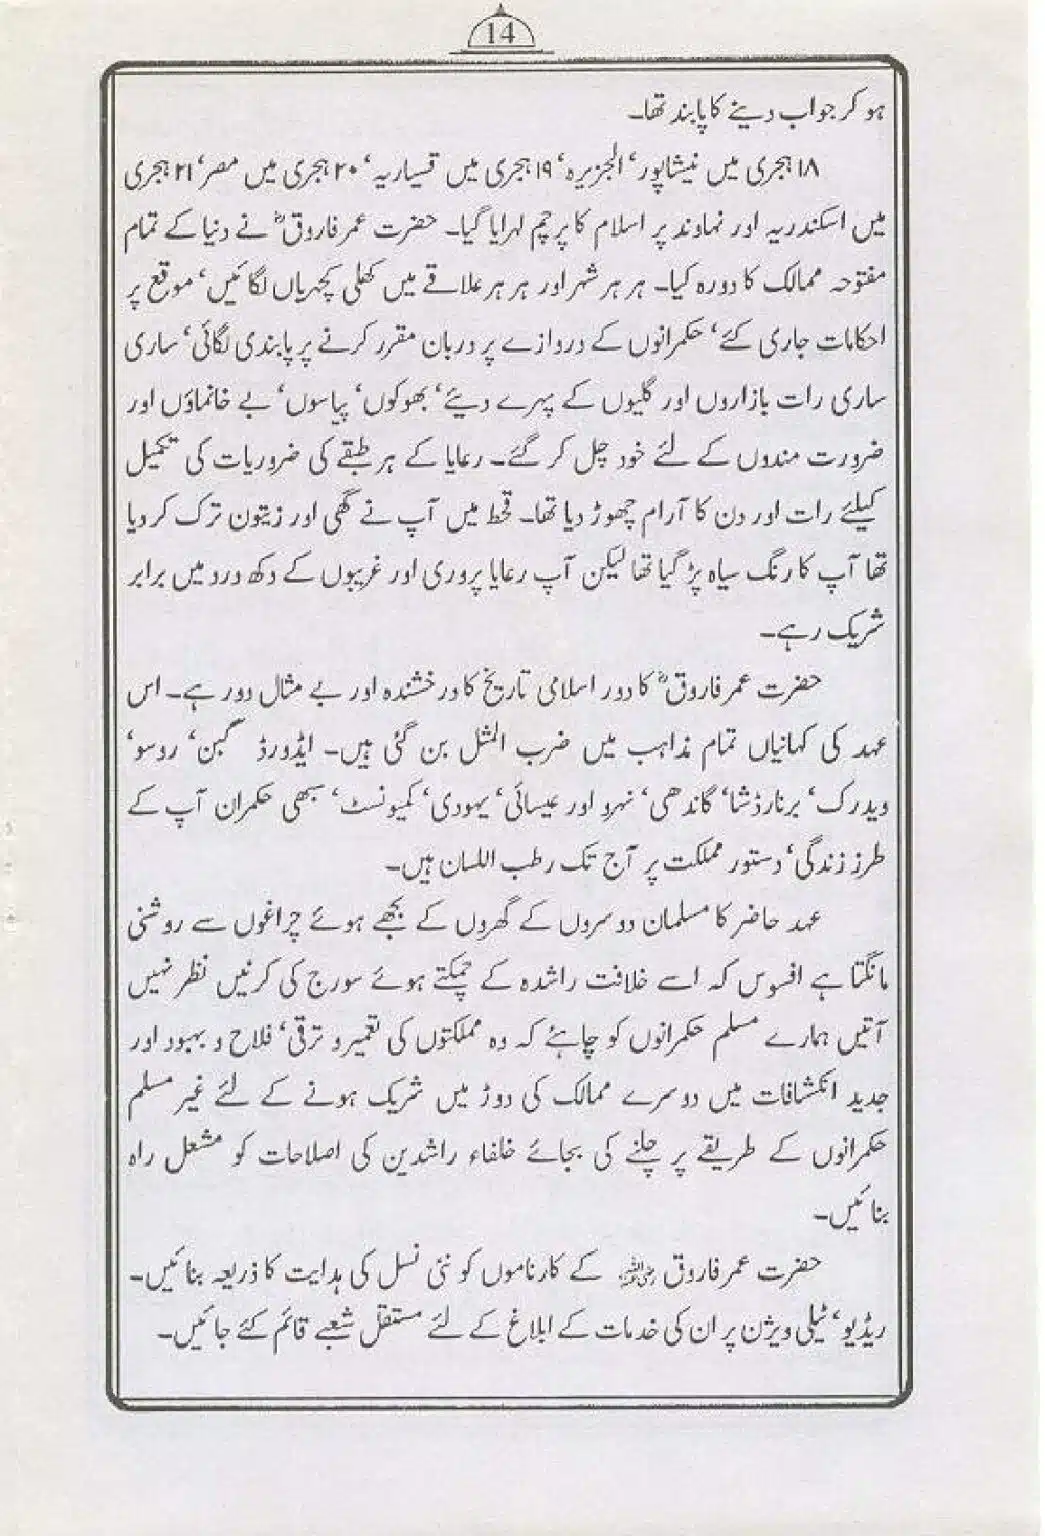 14
ہو کر جواب دینے کا پابند تھا۔
۱۸ ہجری میں نیشاپور‘ الجزیرہ‘ ۱۹ ہجری میں قیساریہ‘ ۲۰ ہجری میں مصر‘ ۲۱ ہجری
میں اسکندریہ اور نہاوند پر اسلام کا پرچم لہرایا گیا۔ حضرت عمر فاروقؓ نے دنیا کے تمام
مفتوحہ ممالک کا دورہ کیا۔ ہر ہر شہر اور ہر ہر علاقے میں کھلی کچہریاں لگائیں‘ موقع پر
احکامات جاری کئے‘ حکمرانوں کے دروازے پر دربان مقرر کرنے پر پابندی لگائی‘ ساری
ساری رات بازاروں اور گلیوں کے پہرے دیئے‘ بھوکوں‘ پیاسوں‘ بے خانماؤں اور
ضرورت مندوں کے لئے خود چل کر گئے۔ رعایا کے ہر طبقے کی ضروریات کی تکمیل
کیلئے رات اور دن کا آرام چھوڑ دیا تھا۔ قحط میں آپ نے گھی اور زیتون ترک کر دیا
تھا آپ کا رنگ سیاہ پڑ گیا تھا لیکن آپ رعایا پروری اور غریبوں کے دکھ درد میں برابر
شریک رہے۔
حضرت عمر فاروقؓ کا دور اسلامی تاریخ کا درخشندہ اور بے مثال دور ہے۔ اس
عہد کی کہانیاں تمام مذاہب میں ضرب المثل بن گئی ہیں۔ ایڈورڈ گبن‘ روسو‘
ویدرک‘ برنارڈشا‘ گاندھی‘ نہرو اور عیسائی‘ یہودی‘ کمیونسٹ‘ سبھی حکمران آپ کے
طرز زندگی‘ دستور مملکت پر آج تک رطب اللسان ہیں۔
عہد حاضر کا مسلمان دوسروں کے گھروں کے بجھے ہوئے چراغوں سے روشنی
مانگتا ہے افسوس کہ اسے خلافت راشدہ کے چمکتے ہوئے سورج کی کرنیں نظر نہیں
آتیں ہمارے مسلم حکمرانوں کو چاہئے کہ وہ مملکتوں کی تعمیر و ترقی‘ فلاح و بہبود اور
جدید انکشافات میں دوسرے ممالک کی دوڑ میں شریک ہونے کے لئے غیر مسلم
حکمرانوں کے طریقے پر چلنے کی بجائے خلفاء راشدین کی اصلاحات کو مشعل راہ
بنائیں۔
حضرت عمر فاروق رضی اللہ عنہ کے کارناموں کو نئی نسل کی ہدایت کا ذریعہ بنائیں۔
ریڈیو‘ ٹیلی ویژن پر ان کی خدمات کے ابلاغ کے لئے مستقل شعبے قائم کئے جائیں۔